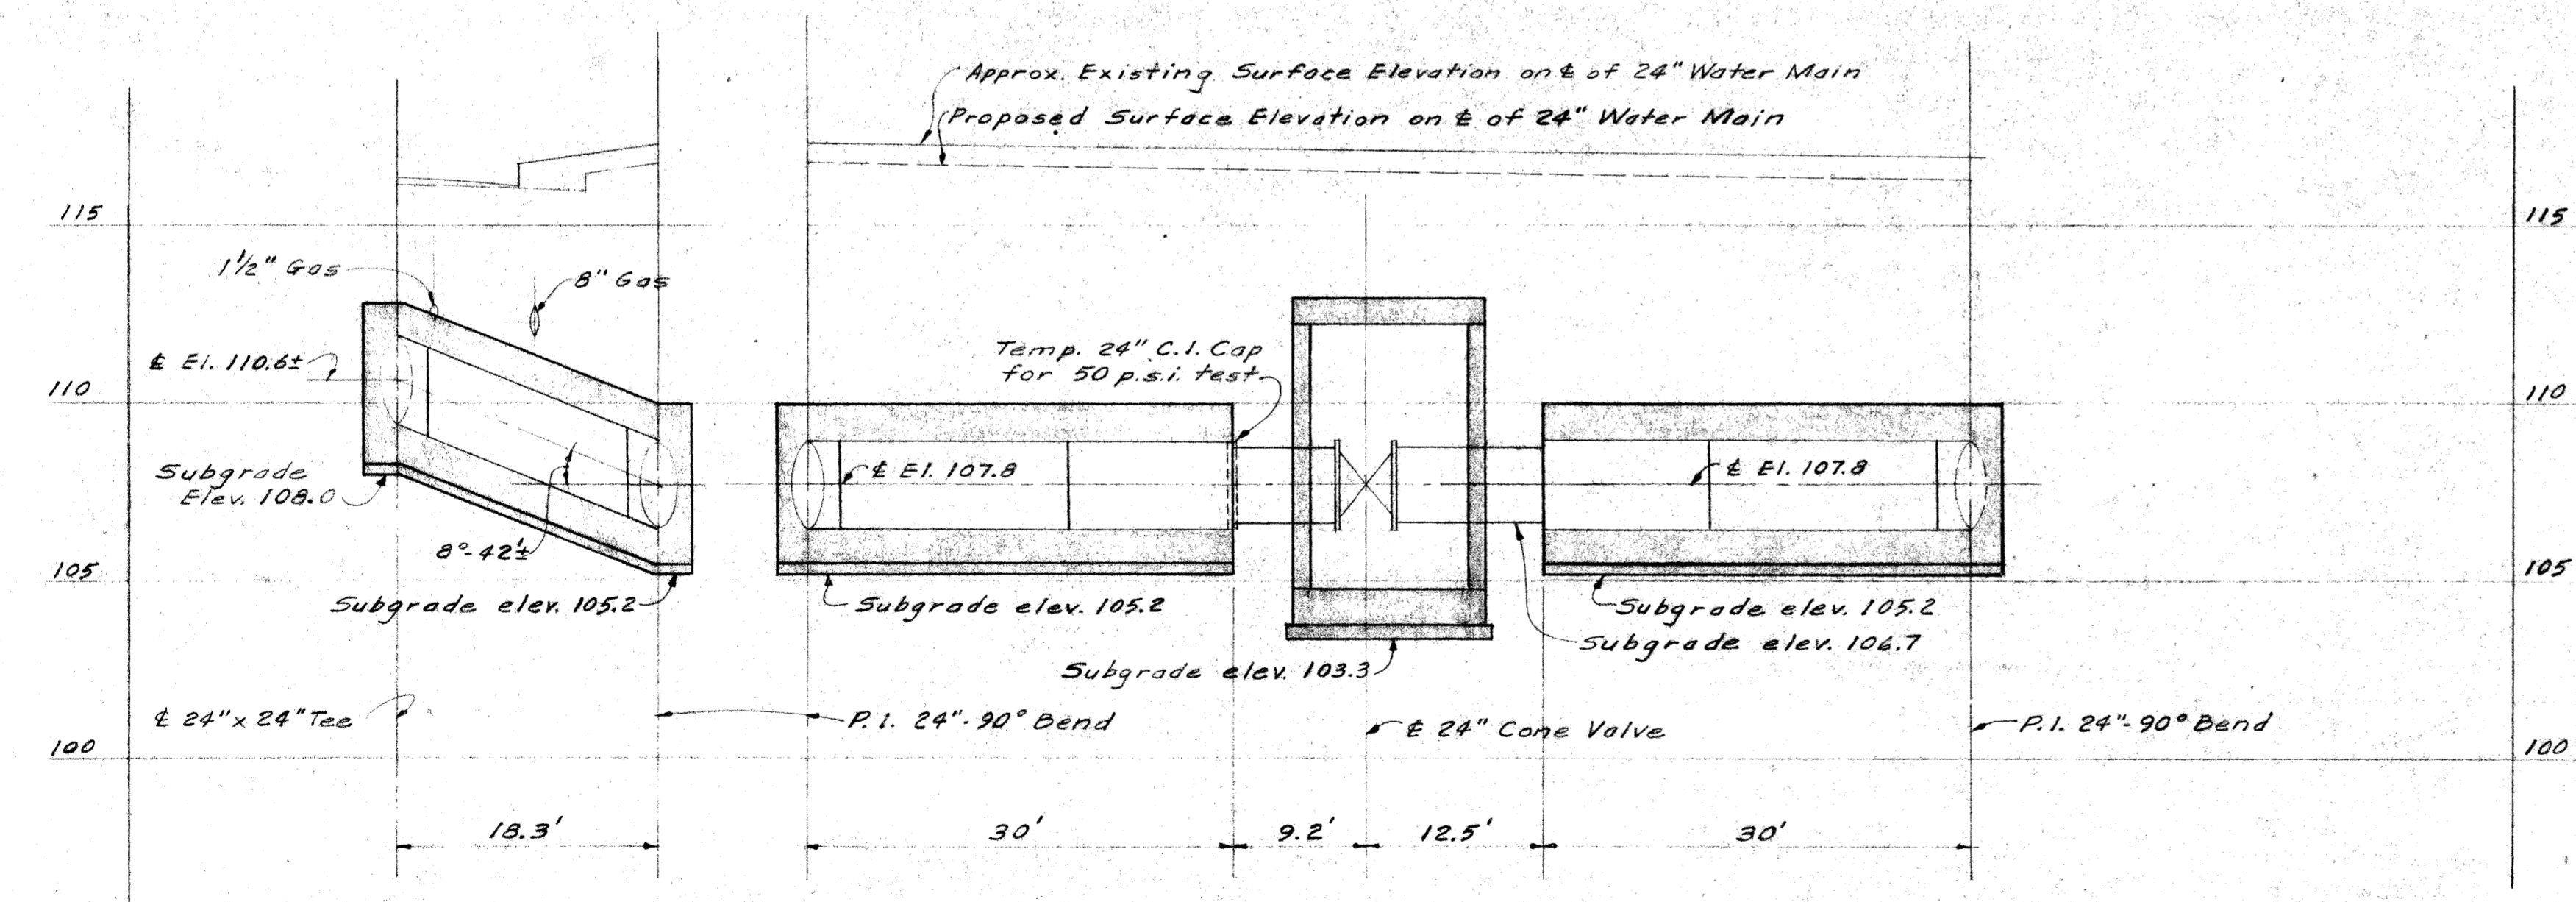 Approx. Existing Surface Elevation on ℄ of 24" Water Main
Proposed Surface Elevation on ℄ of 24" Water Main
115
115
1½" Gas
8" Gas
℄ El. 110.6±
Temp. 24" C.I. Cap
for 50 p.s.i. test
110
110
Subgrade
Elev. 108.0
℄ El. 107.8
℄ El. 107.8
8°-42'±
105
105
Subgrade elev. 105.2
Subgrade elev. 105.2
Subgrade elev. 105.2
Subgrade elev. 106.7
Subgrade elev. 103.3
℄ 24" x 24" Tee
P.I. 24"-90° Bend
℄ 24" Cone Valve
P.I. 24"-90° Bend
100
100
18.3'
30'
9.2'
12.5'
30'